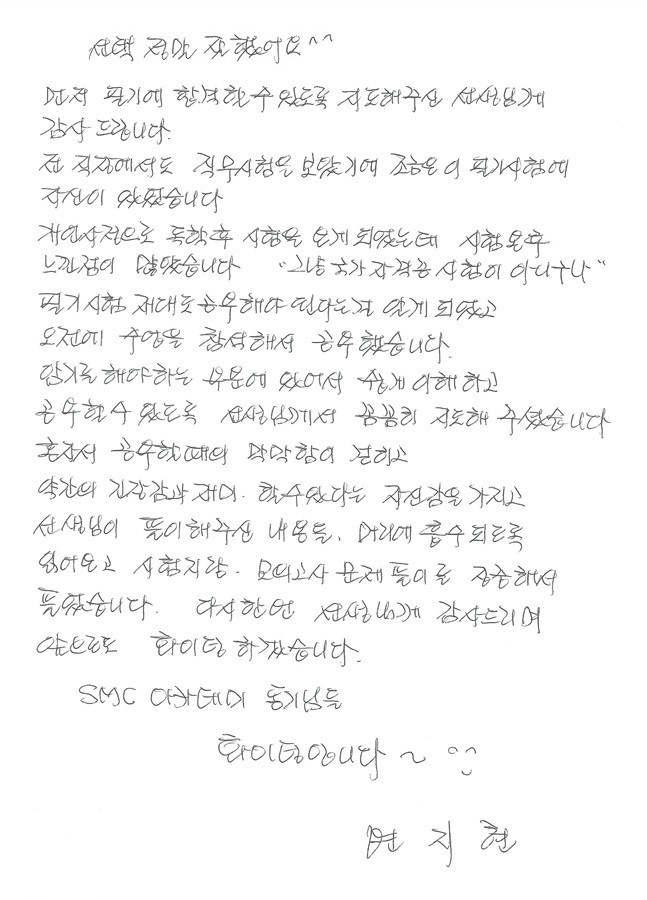 선택 정말 잘했어요^^
먼저 필기에 합격할 수 있도록 지도해주신 선생님께
감사드립니다.
전 직장에서도 직무시험을 보았기에 조금은 이 필기시험에
자신이 있었습니다
개인사정으로 독학후 시험을 보게 되었는데 시험본후
느낀점이 많았습니다 "그냥 국가자격증 시험이 아니구나"
필기시험 제대로 공부해야 된다는걸 알게 되었고
오전에 수업을 참석해서 공부했습니다.
암기를 해야하는 부분에 있어서 쉽게 이해하고
공부할수 있도록 선생님께서 꼼꼼히 지도해 주셨습니다
혼자서 공부할때의 막막함이 걷히고
약간의 긴장감과 재미. 할수있다는 자신감을 가지고
선생님이 풀이해주신 내용들, 머리에 흡수되도록
읽어보고 시험지랑. 모의고사 문제풀이로 집중해서
풀었습니다. 다시한번 선생님께 감사드리며
앞으로도 화이팅 하겠습니다.
SMC 아카데미 동기님들
화이팅입니다~
지현